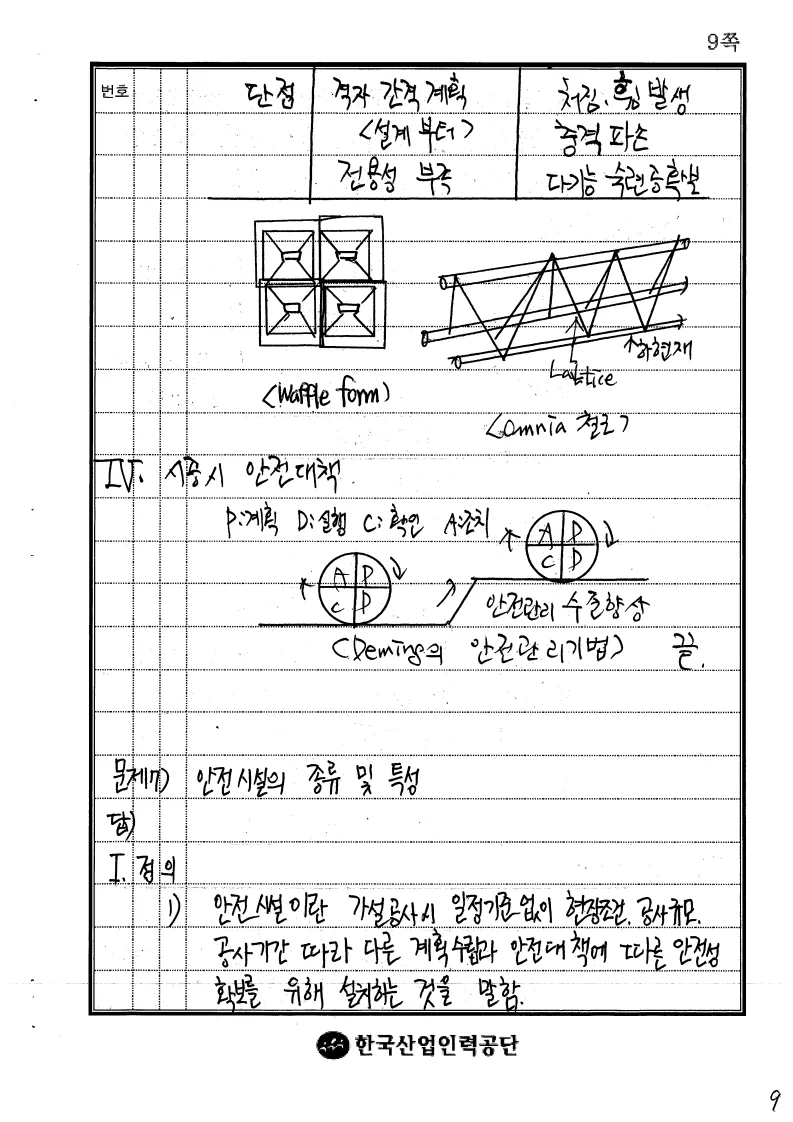 9쪽
번호 단점 격자 간격 계획 처짐, 휨 발생
<설계 부터> 충격 파손
전용성 부족 다기능 숙련공확보
Lattice
하현재
<Waffle form>
<Omnia 철근>
IV. 시공시 안전대책
P:계획 D:실행 C:확인 A:조치
A P
C D
A P
C D
안전관리 수준향상
<Deming의 안전관리기법> 끝.
문제7) 안전시설의 종류 및 특성
답)
I. 정의
1) 안전시설이란 가설공사시 일정기준없이 현장조건, 공사규모,
공사기간 따라 다른 계획수립과 안전대책에 따른 안전성
확보를 위해 설치하는 것을 말함.
한국산업인력공단
9